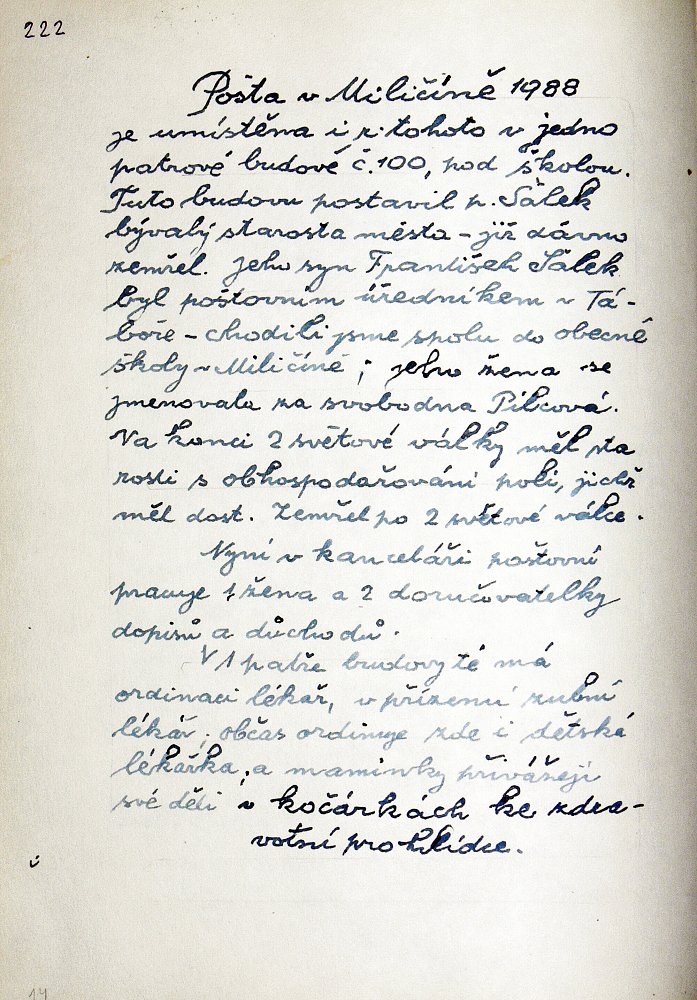 222
Pošta v Miličíně 1988
je umístěna i r. tohoto v jedno
patrové budově č. 100, pod školou.
Tuto budovu postavil p. Šálek
bývalý starosta města - již dávno
zemřel. Jeho syn František Šálek
byl poštovním úředníkem v Tá-
boře - chodili jsme spolu do obecné
školy v Miličíně; jeho žena se
jmenovala za svobodna Pilcová.
Na konci 2 světové války měl sta
rosti s obhospodařováni poli, jichž
měl dost. Zemřel po 2 světové válce.
Nyní v kanceláři poštovní
pracuje 1 žena a 2 doručovatelky
dopisů a důchodů.
V 1 patře budovy té má
ordinaci lékař, v přízemí zubní
lékař; občas ordinuje zde i dětská
lékařka, a maminky přivážejí
své děti v kočárkách ke zdra-
votní prohlídce.
14